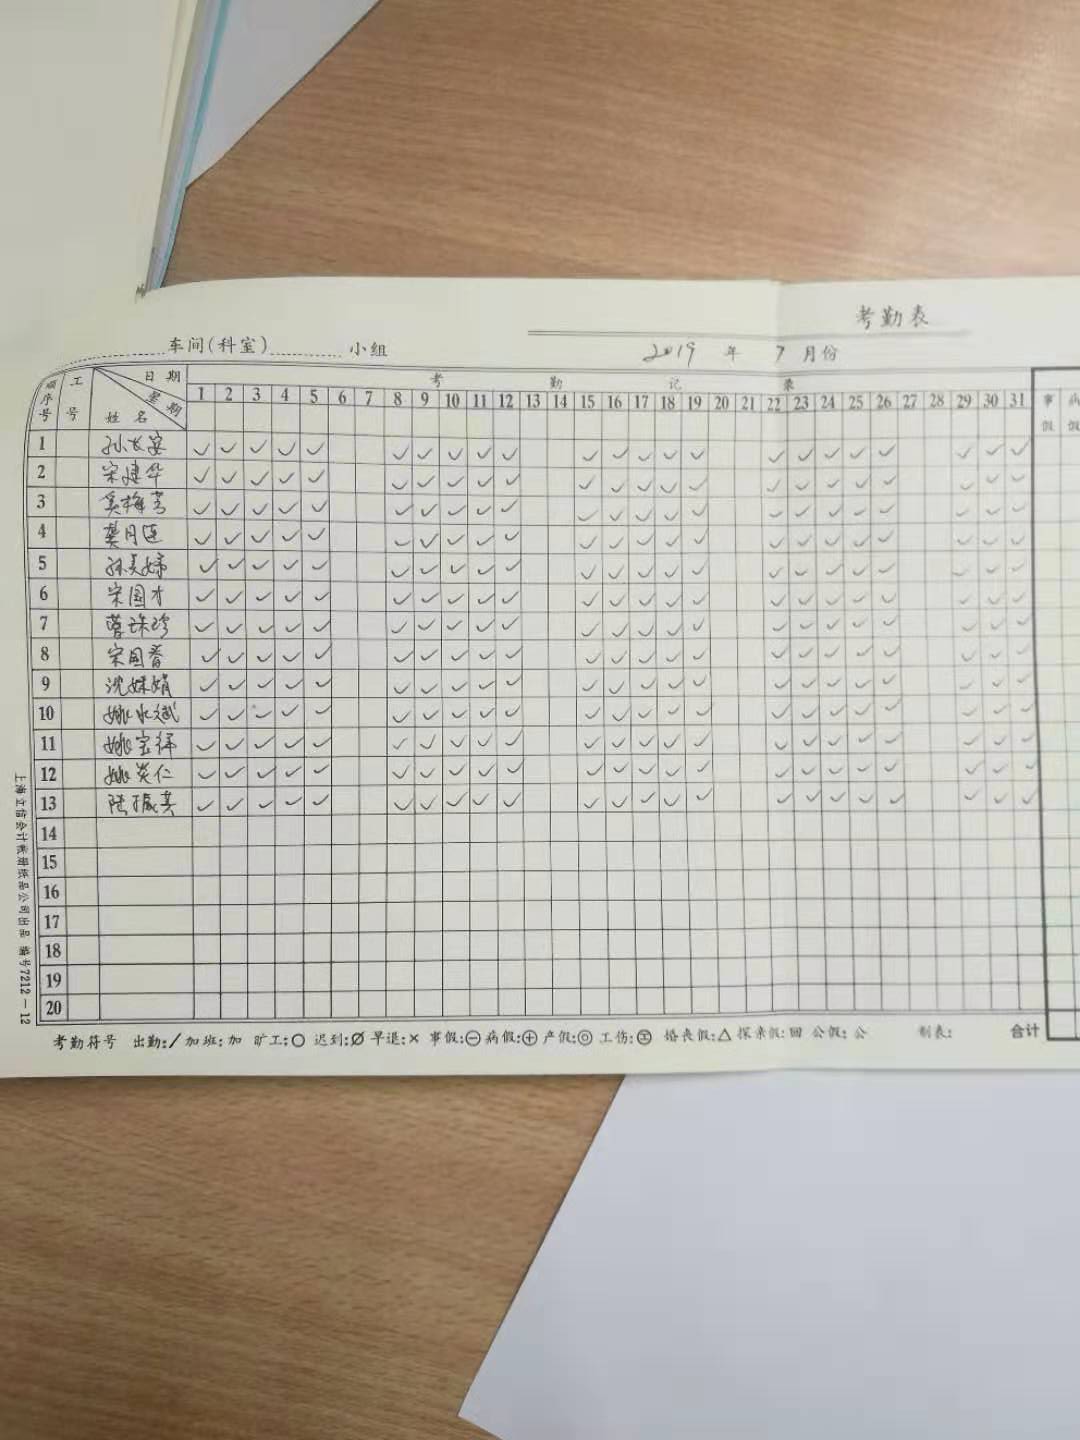 考勤表
车间(科室) 小组
2019 年 7 月份
顺序号 工号 日期 星期 姓名 考勤记录 事假 病假
1 2 3 4 5 6 7 8 9 10 11 12 13 14 15 16 17 18 19 20 21 22 23 24 25 26 27 28 29 30 31
1 孙长安 ✓ ✓ ✓ ✓ ✓ ✓ ✓ ✓ ✓ ✓ ✓ ✓ ✓ ✓ ✓ ✓ ✓ ✓ ✓ ✓ ✓ ✓ ✓
2 宋建华 ✓ ✓ ✓ ✓ ✓ ✓ ✓ ✓ ✓ ✓ ✓ ✓ ✓ ✓ ✓ ✓ ✓ ✓ ✓ ✓ ✓ ✓ ✓
3 吴梅芳 ✓ ✓ ✓ ✓ ✓ ✓ ✓ ✓ ✓ ✓ ✓ ✓ ✓ ✓ ✓ ✓ ✓ ✓ ✓ ✓ ✓ ✓ ✓
4 龚月连 ✓ ✓ ✓ ✓ ✓ ✓ ✓ ✓ ✓ ✓ ✓ ✓ ✓ ✓ ✓ ✓ ✓ ✓ ✓ ✓ ✓ ✓ ✓
5 孙美娣 ✓ ✓ ✓ ✓ ✓ ✓ ✓ ✓ ✓ ✓ ✓ ✓ ✓ ✓ ✓ ✓ ✓ ✓ ✓ ✓ ✓ ✓ ✓
6 宋国才 ✓ ✓ ✓ ✓ ✓ ✓ ✓ ✓ ✓ ✓ ✓ ✓ ✓ ✓ ✓ ✓ ✓ ✓ ✓ ✓ ✓ ✓ ✓
7 ✓ ✓ ✓ ✓ ✓ ✓ ✓ ✓ ✓ ✓ ✓ ✓ ✓ ✓ ✓ ✓ ✓ ✓ ✓ ✓ ✓ ✓ ✓
8 宋国香 ✓ ✓ ✓ ✓ ✓ ✓ ✓ ✓ ✓ ✓ ✓ ✓ ✓ ✓ ✓ ✓ ✓ ✓ ✓ ✓ ✓ ✓ ✓
9 沈妹娟 ✓ ✓ ✓ ✓ ✓ ✓ ✓ ✓ ✓ ✓ ✓ ✓ ✓ ✓ ✓ ✓ ✓ ✓ ✓ ✓ ✓ ✓ ✓
10 姚水斌 ✓ ✓ ✓ ✓ ✓ ✓ ✓ ✓ ✓ ✓ ✓ ✓ ✓ ✓ ✓ ✓ ✓ ✓ ✓ ✓ ✓ ✓ ✓
11 ✓ ✓ ✓ ✓ ✓ ✓ ✓ ✓ ✓ ✓ ✓ ✓ ✓ ✓ ✓ ✓ ✓ ✓ ✓ ✓ ✓ ✓ ✓
12 姚炎仁 ✓ ✓ ✓ ✓ ✓ ✓ ✓ ✓ ✓ ✓ ✓ ✓ ✓ ✓ ✓ ✓ ✓ ✓ ✓ ✓ ✓ ✓ ✓
13 陆振英 ✓ ✓ ✓ ✓ ✓ ✓ ✓ ✓ ✓ ✓ ✓ ✓ ✓ ✓ ✓ ✓ ✓ ✓ ✓ ✓ ✓ ✓ ✓
14
15
16
17
18
19
20
考勤符号 出勤:/ 加班:加 旷工:○ 迟到:Ø 早退:× 事假:⊖ 病假:⊕ 产假:◎ 工伤:㊣ 婚丧假:△ 探亲假:回 公假:公 制表: 合计
上海立信会计帐册纸品公司出品 编号7212-12